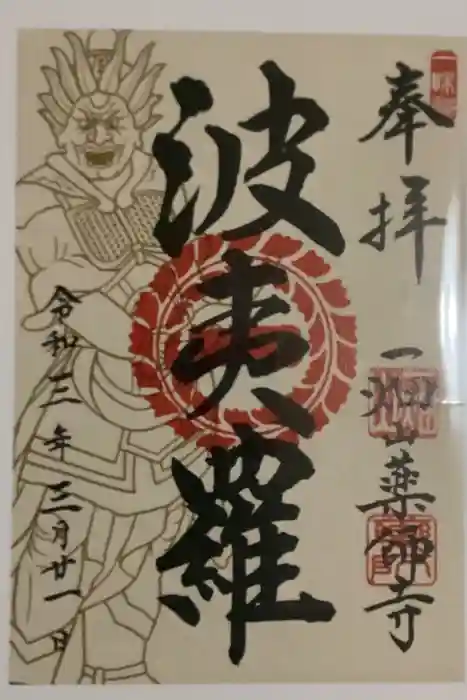 奉拝 一畑山薬師寺
波夷羅
令和三年三月廿一日